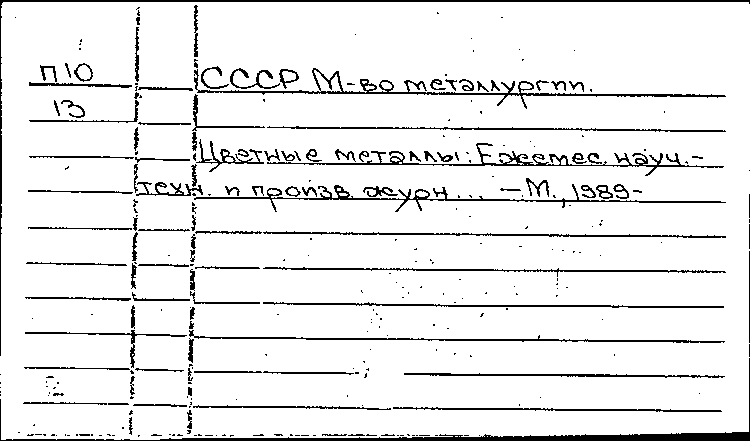 П10 СССР М-во металлургии.
13
Цветные металлы: Ежемес. науч.-
техн. и произв. журн... – М., 1989-